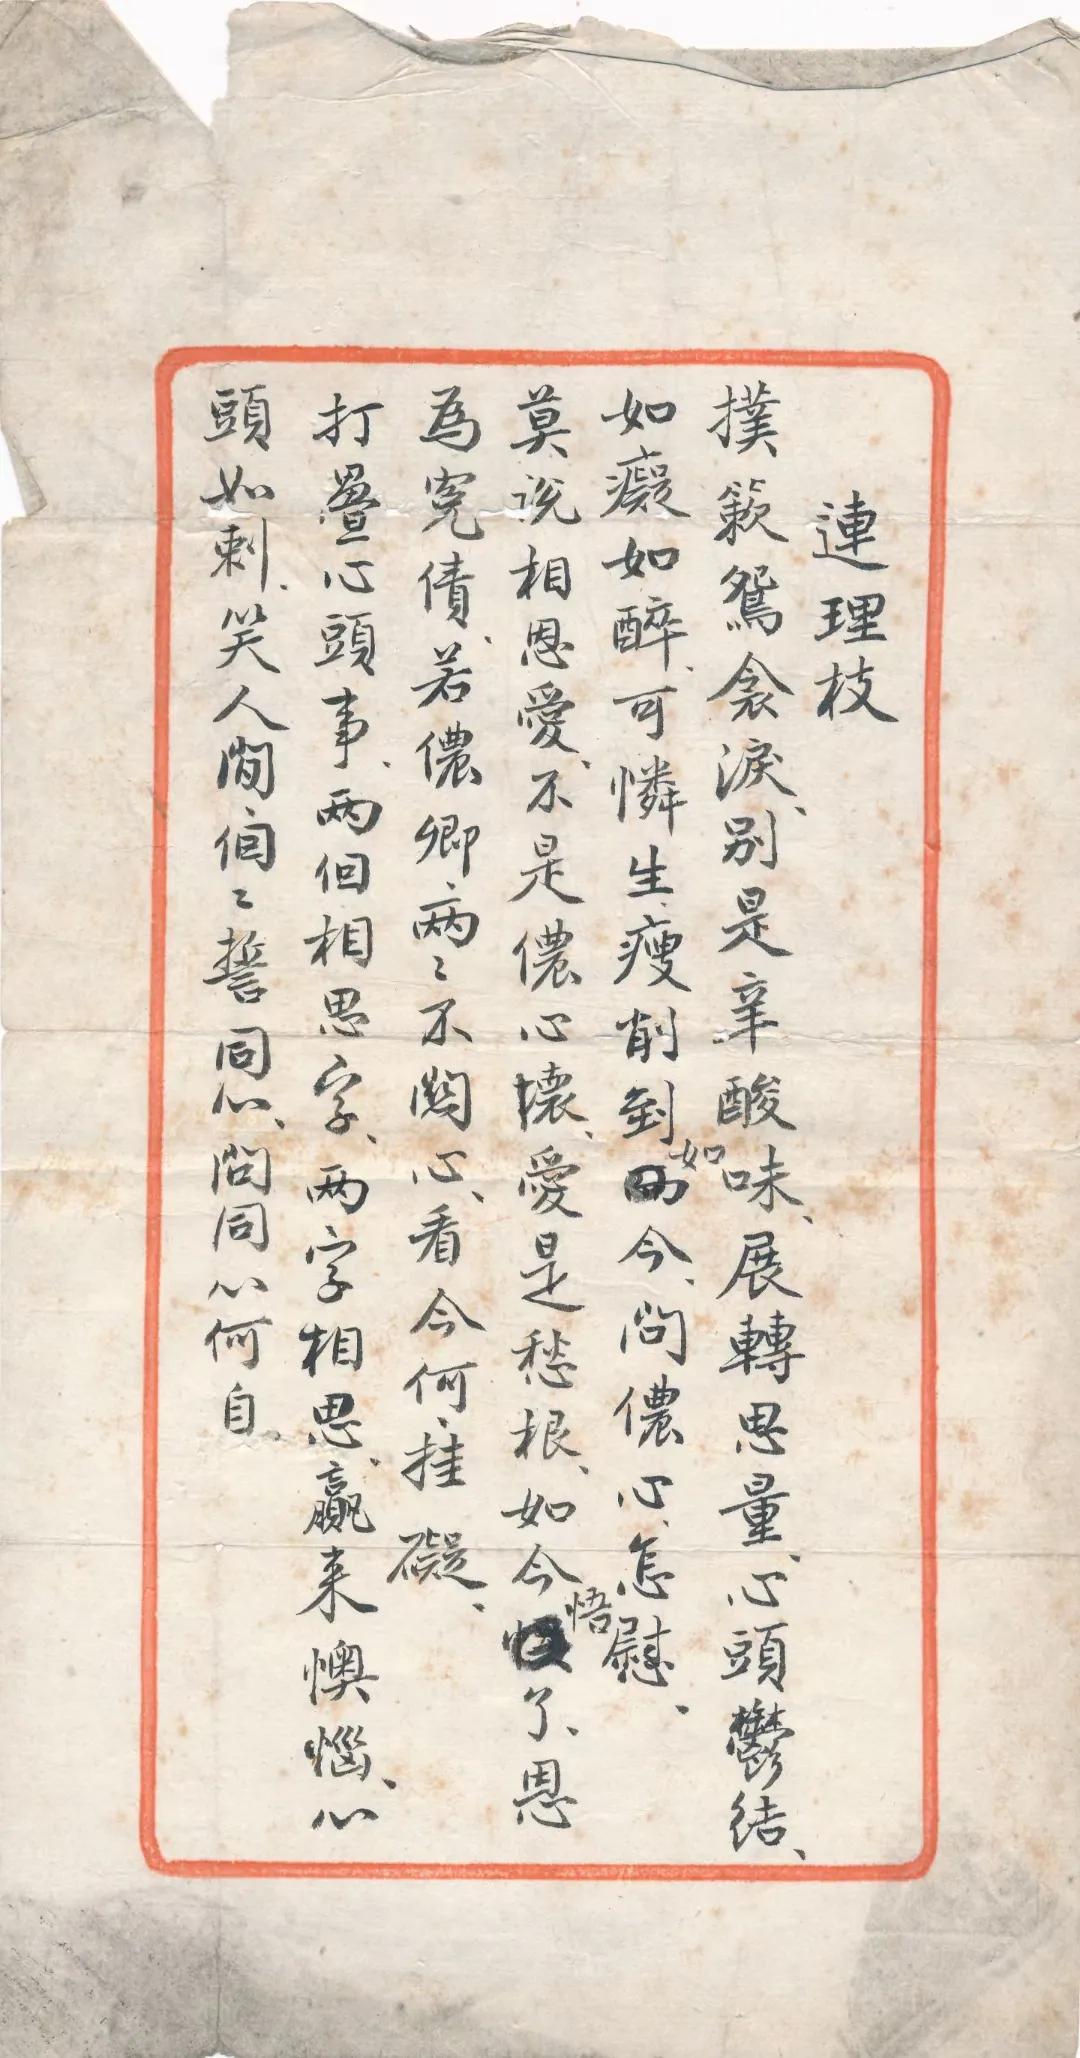 連理枝
撲簌鴛衾淚、別是辛酸味、展轉思量、心頭鬱結、
如癡如醉、可憐生、瘦削到如今、問儂心、怎慰、
莫說相恩愛、不是儂心壞、愛是愁根、如今悟了、恩
為冤債、若儂卿、兩〻不關心、看今何、挂礙、
打疊心頭事、两個相思字、两字相思、贏来懊惱、心
頭如刺、笑人間、個〻誓同心、問同心何自、